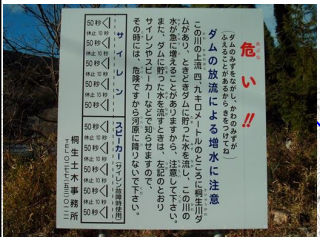 危い!!
(ダムのみずをながし、かわのみずが
ふえることがあるから きをつけてね)
ダムの放流による増水に注意
この川の上流 四、九キロメートルのところに桐生川ダ
ムがあり、ときどきダムに貯った水を流し、この川の
水が急に増えることがありますから、注意して下さい。
また、ダムに貯った水を流すときは、左記のとおり
サイレンやスピーカーなどで知らせますので、
その時には、危険ですから河原に降りないで下さい。
サイレン
50秒
休止10秒
50秒
休止10秒
50秒
休止10秒
50秒
休止10秒
50秒
スピーカー(サイレン故障時使用)
50秒
休止10秒
50秒
休止10秒
50秒
休止10秒
50秒
桐生土木事務所